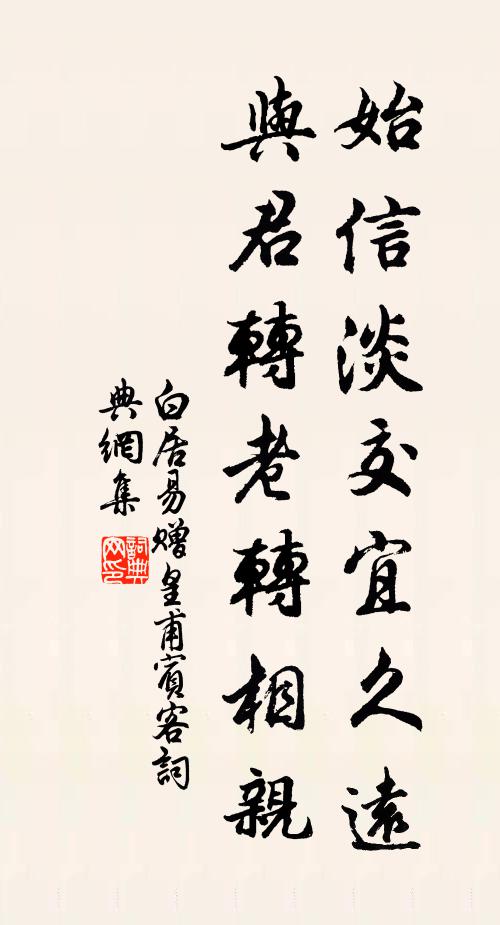 始信淡交宜久遠
與君轉老轉相親
白居易贈皇甫賓客詞
典網集
詞典
网印